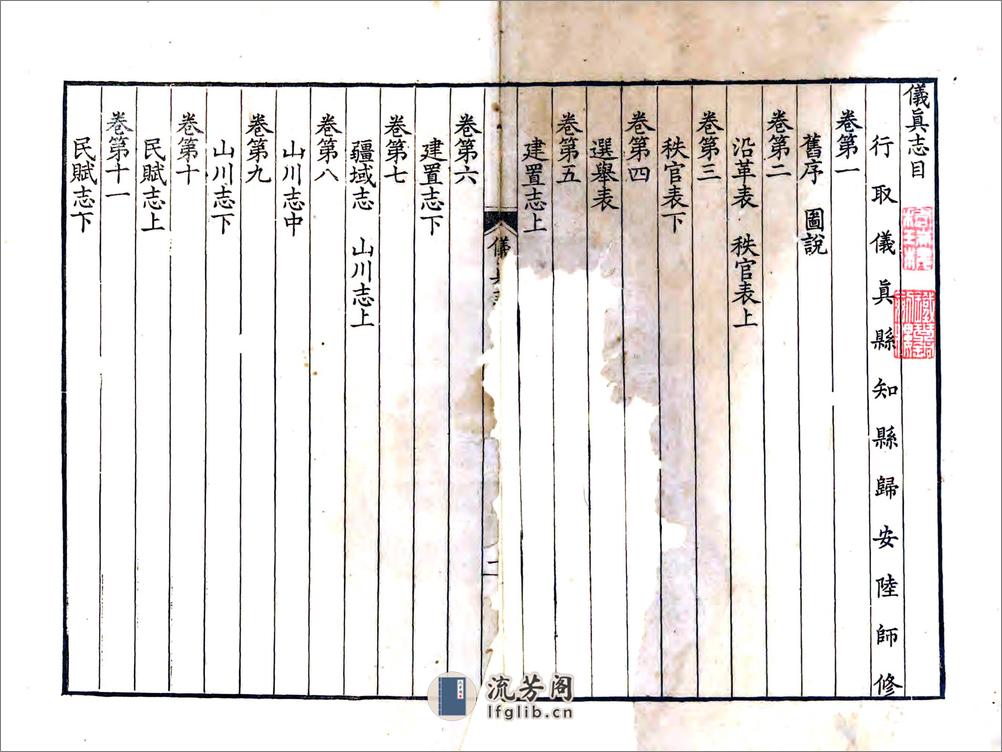 儀眞志目
行取儀眞縣知縣歸安陸師修
卷第一
舊序　圖說
卷第二
沿革表　秩官表上
卷第三
秩官表下
卷第四
選舉表
卷第五
建置志上
儀
二
卷第六
建置志下
卷第七
疆域志　山川志上
卷第八
山川志中
卷第九
山川志下
卷第十
民賦志上
卷第十一
民賦志下
流芳阁
lfglib.cn